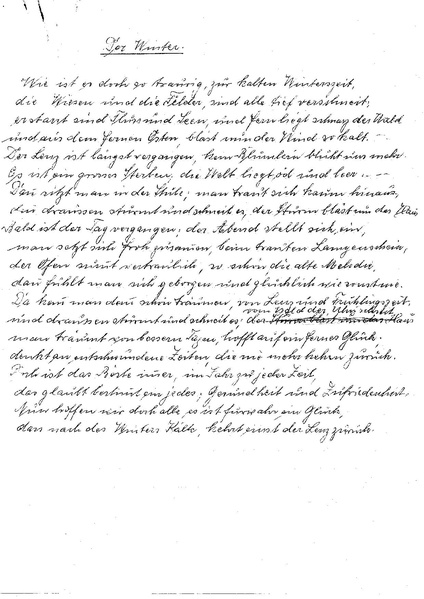 Der Winter.
Wie ist es doch so traurig, zur kalten Winterszeit,
die Wiesen und die Felder, sind alle tief verschneit;
erstarrt sind Fluss und Seen, und fern liegt schwarz der Wald
und aus dem fernen Osten, bläst nun der Wind so kalt. –
Der Lenz ist längst vergangen, kein Blümlein blüht uns mehr
Es ist ein grosses Sterben, die Welt liegt öd und leer. –
Dan sitzt man in der Stube; man traut sich kaum hinaus,
den draussen stürmt und schneit es, der Sturm bläst um das Haus
Bald ist der Tag vergangen; der Abend stellt sich ein,
man setzt sich froh zusammen, beim trauten Lampenschein,
der Ofen surrt vertraulich, so schön die alte Melodie,
dan fühlt man sich geborgen und glücklich wie sonst nie.
Da kann man dan schön träumen, von Lenz und Frühlingszeit
und draussen stürmt und schneit es: der Sturm bläst um das Haus
man träumt von bessern Tagen, hofft auf ein fernes Glück.
denkt an entschwundne Zeiten, die nie mehr kehren zurück.
Doch ist das Beste immer, im Jahr zu jeder Zeit,
das glaubt bestimt ein jedes: Gesundheit und Zufriedenheit.
Nun hoffen wir doch alle, es ist fürwahr ein Glück,
dass nach des Winters Kälte, kehrt einst der Lenz zurück.